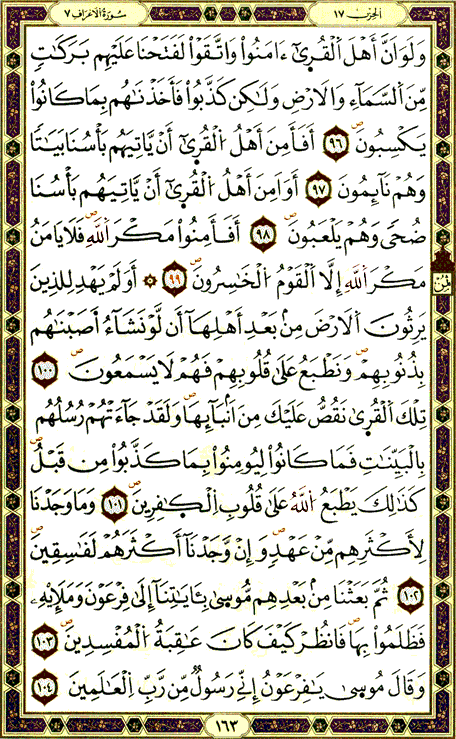 الحزب ١٧ سُورَةُ الْأَعْرَافِ ٧
وَلَوَ اَنَّ أَهْلَ اَلْقُرَىٰٓ ءَامَنُواْ وَاتَّقَوْاْ لَفَتَحْنَا عَلَيْهِم بَرَكَٰتٍ
مِّنَ اَلسَّمَآءِ وَالَارْضِ وَلَٰكِن كَذَّبُواْ فَأَخَذْنَٰهُم بِمَا كَانُواْ
يَكْسِبُونَ ٩٦ أَفَأَمِنَ أَهْلُ اَلْقُرَىٰٓ أَنْ يَّاتِيَهُم بَأْسُنَا بَيَٰتاً
وَهُمْ نَآئِمُونَ ٩٧ أَوَ اَمِنَ أَهْلُ اَلْقُرَىٰٓ أَنْ يَّاتِيَهُم بَأْسُنَا
ضُحىً وَهُمْ يَلْعَبُونَ ٩٨ أَفَأَمِنُواْ مَكْرَ اَللَّهِ فَلَا يَامَنُ
مَكْرَ اَللَّهِ إِلَّا اَلْقَوْمُ اُلْخَٰسِرُونَ ٩٩ ۞ أَوَلَمْ يَهْدِ لِلذِينَ
ثمن
يَرِثُونَ اَلَارْضَ مِنۢ بَعْدِ أَهْلِهَآ أَن لَّوْ نَشَآءُ اَصَبْنَٰهُم
بِذُنُوبِهِمْ وَنَطْبَعُ عَلَىٰ قُلُوبِهِمْ فَهُمْ لَا يَسْمَعُونَ ١٠٠
تِلْكَ اَلْقُرَىٰ نَقُصُّ عَلَيْكَ مِنَ اَنۢبَآئِهَا وَلَقَدْ جَآءَتْهُمْ رُسُلُهُم
بِالْبَيِّنَٰتِ فَمَا كَانُواْ لِيُومِنُواْ بِمَا كَذَّبُواْ مِن قَبْلُ
كَذَٰلِكَ يَطْبَعُ اُللَّهُ عَلَىٰ قُلُوبِ اِلْكَٰفِرِينَ ١٠١ وَمَا وَجَدْنَا
لِأَكْثَرِهِم مِّنْ عَهْدٍ وَإِنْ وَّجَدْنَآ أَكْثَرَهُمْ لَفَٰسِقِينَ
١٠٢ ثُمَّ بَعَثْنَا مِنۢ بَعْدِهِم مُّوسَىٰ بِـَٔايَٰتِنَآ إِلَىٰ فِرْعَوْنَ وَمَلَإِيْهِۦ
فَظَلَمُواْ بِهَا فَانظُرْ كَيْفَ كَانَ عَٰقِبَةُ اُلْمُفْسِدِينَ ١٠٣
وَقَالَ مُوسَىٰ يَٰفِرْعَوْنُ إِنِّے رَسُولٌ مِّن رَّبِّ اِلْعَٰلَمِينَ ١٠٤
١٦٣